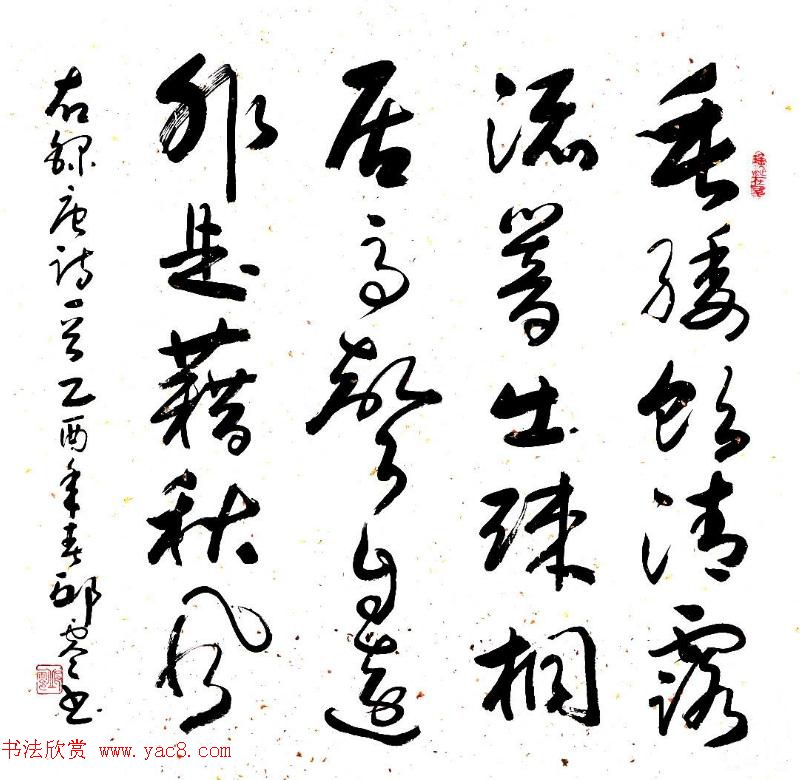 垂緌飲清露
流響出疎桐
居高聲自遠
非是藉秋風
右錄唐詩一首乙酉年春
书法欣赏 www.yac8.com